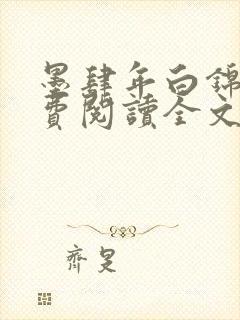 墨肆年白錦
費閱讀全文
齊是